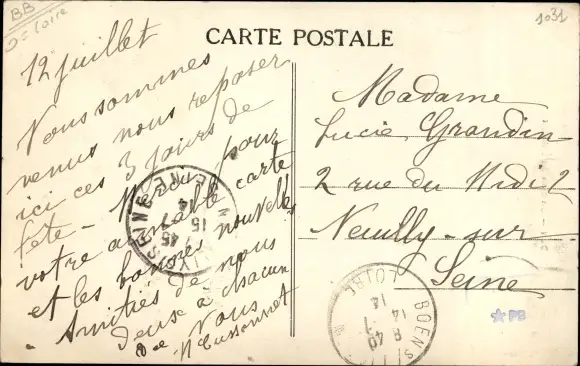 BB
D = Loire
1031
CARTE POSTALE
12 juillet
Nous sommes
venus nous reposer
ici ces 3 jours de
fête - Merci pour
votre aimable carte
et les bonnes nouvelles
Amitiés de nous
deux à chacun
de vous
Madame
Lucie Grandin
2 rue du Midi 2
Neuilly-sur
Seine
NEUILLY S/SEINE
15 -7
14
BOEN
LOIRE
8 40
14 -7
14
PB